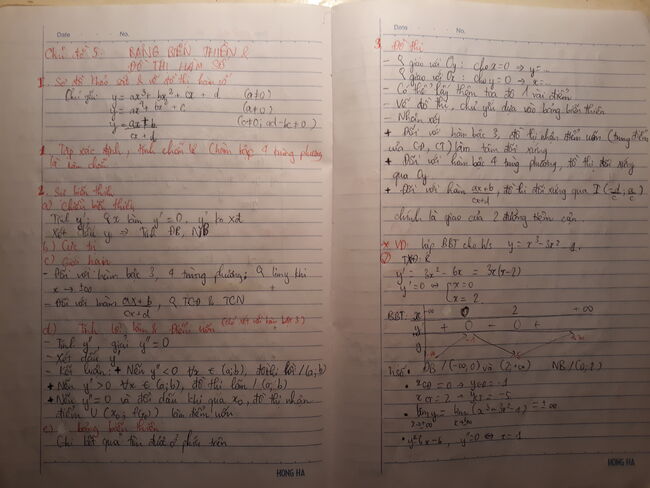 Date No.
Chủ đề 5: BẢNG BIẾN THIÊN &
ĐỒ THỊ HÀM SỐ
I. Sơ đồ khảo sát & vẽ đồ thị hàm số
Chú ý: y = ax³ + bx² + cx + d (a≠0)
y = ax⁴ + bx² + c (a≠0)
y = (ax+b)/(cx+d) (c≠0; ad-bc≠0)
1. Tập xác định, tính chẵn lẻ
trùng phương
là hàm chẵn
2. Sự biến thiên
a) Chiều biến thiên
Tính y'; y' = 0, y' ko xđ
Xét dấu y' ⇒ Tính ĐB, NB
b) Cực trị
c) Giới hạn
- Đối với hàm bậc 3, 4 trùng phương: khi
x → ±∞
- Đối với hàm (ax+b)/(cx+d), TCĐ & TCN
d) Tính lồi, lõm & điểm uốn (chỉ xét với hàm bậc 3)
- Tính y'', giải y'' = 0
- Xét dấu y''
- Kết luận: + Nếu y'' < 0 ∀x ∈ (a;b), đồ thị lồi /(a;b)
+ Nếu y'' > 0 ∀x ∈ (a;b), đồ thị lõm /(a;b)
+ Nếu y'' = 0 và đổi dấu khi qua x₀, đồ thị nhận
điểm U (x₀; f(x₀)) làm điểm uốn
e) bảng biến thiên
Ghi kết quả tìm được ở phần trên
HONG HA
Date No.
3. Đồ thị
- giao với Oy: cho x = 0 ⇒ y = ...
giao với Ox: cho y = 0 ⇒ x = ...
- Có thể lấy thêm tọa độ 1 vài điểm
- Vẽ đồ thị, chủ yếu dựa vào bảng biến thiên
- Nhận xét
+ Đối với hàm bậc 3, đồ thị nhận điểm uốn (trung điểm
của CĐ, CT) làm tâm đối xứng
+ Đối với hàm bậc 4 trùng phương, đồ thị đối xứng
qua Oy
+ Đối với hàm (ax+b)/(cx+d), đồ thị đối xứng qua I (-d/c; a/c)
chính là giao của 2 đường tiệm cận.
* VD: lập BBT cho h/s y = x³ - 3x² - 1.
TXĐ: R
y' = 3x² - 6x = 3x(x-2)
y' = 0 ⇔ x = 0
x = 2
BBT: x -∞ 0 2 +∞
y' + 0 - 0 +
y
ĐB /(-∞;0) và (2;+∞) NB /(0;2)
• x_CĐ = 0 → y_CĐ = -1
x_CT = 2 → y_CT = -5
• lim y = lim (x³ - 3x² - 1) = ±∞
x→±∞ x→±∞
• y'' = 6x - 6, y'' = 0 ⇔ x = 1
HONG HA